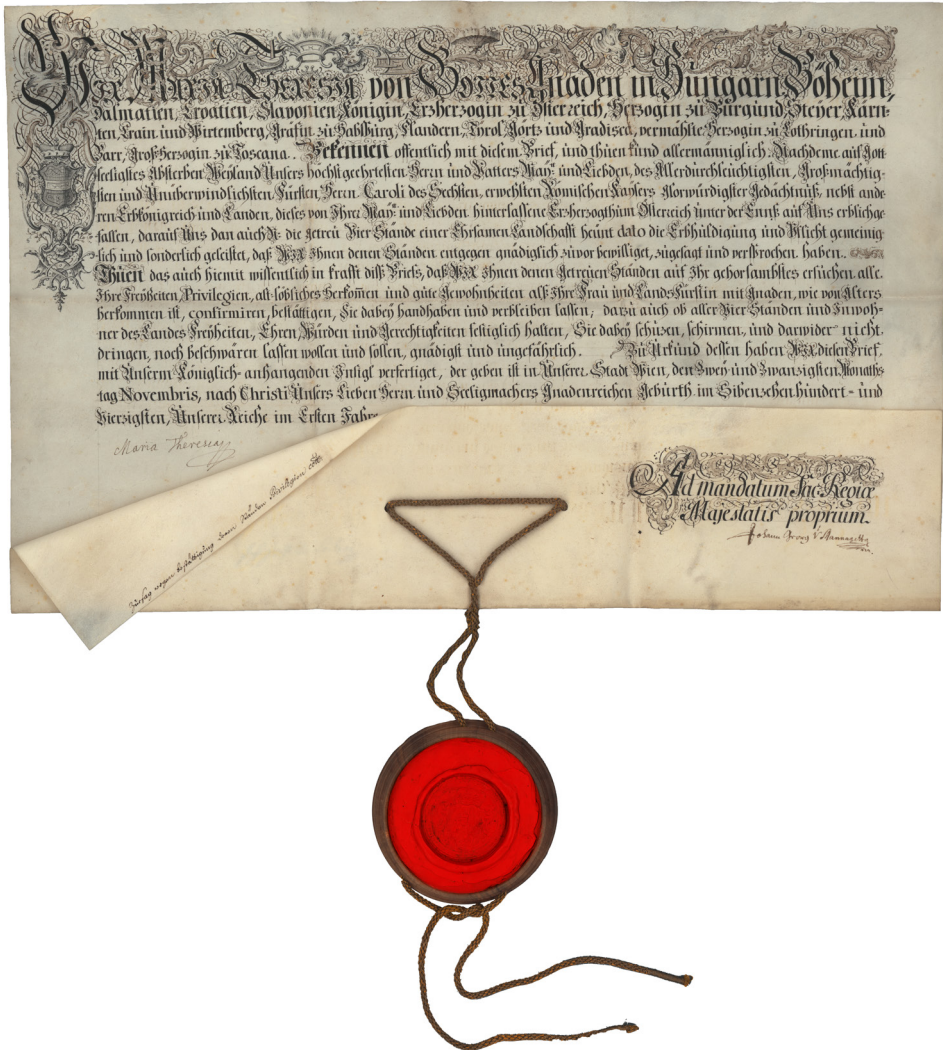 Wir Maria Theresia von Gottes Gnaden in Hungarn, Böheim,
Dalmatien, Croatien, Slavonien, Königin, Erzherzogin zu Österreich, Herzogin zu Burgund, Steyer, Kärn-
ten, Crain und Wirtemberg, Gräfin zu Habspurg, Flandern, Tyrol, Görtz und Gradisca, vermählte Herzogin zu Lothringen, und
Barr, Groß-Herzogin zu Toscana. Bekennen offentlich mit diesem Brief, und thuen kund allermänniglich: Nachdeme auf Gott
seeligstes Absterben Weyland Unsers höchst geehrtesten Herrn und Vatters Mayt. und Liebden, des Allerdurchleüchtigsten, Großmächtig-
sten und Unüberwindlichsten Fürsten, Herrn Caroli des Sechsten, erwehlten Römischen Kaysers Glorwürdigster Gedächtnüß, nebst ande-
ren Erbkönigreich und Landen, dieses von Ihrer Mayt. und Liebden hinterlassene Erzherzogthum Österreich unter der Ennß auf Uns erblich ge-
fallen, darauf Uns dan auch die getreu Vier Stände einer Ehrsamen Landschafft heunt dato die Erbhuldigung und Pflicht gemeinig-
lich und sonderlich geleistet, daß WIR Ihnen denen Ständen entgegen gnädiglich zuvor bewilliget, zugesagt und versprochen haben.
Thuen das auch hiemit wissentlich in krafft diß Briefs, daß WIR Ihnen denen Getreuen Ständen auf Ihr gehorsambstes ersuchen alle
Ihre Freyheiten, Privilegien, alt-löbliches Herkommen und gute Gewohnheiten alß Ihre Frau und Lands-Fürstin mit Gnaden, wie von Alters
herkommen ist, confirmiren, bestättigen, Sie dabey handhaben und verbleiben lassen; darzu auch ob aller Vier Ständen und Inwoh-
ner des Landes Freyheiten, Ehren, Würden und Gerechtigkeiten festiglich halten, Sie dabey schüzen, schirmen, und darwider nicht
dringen, noch beschwären lassen wollen und sollen, gnädigst und ungefährlich. Zu Urkund dessen haben WIR diesen Brief
mit Unserm Königlich-anhangenden Insigl verfertiget, der geben ist in Unserer Stadt Wien, den Zwey und Zwanzigsten Monaths-
tag Novembris, nach Christi Unsers Lieben Herrn und Seeligmachers Gnadenreichen Geburth im Sibenzehenhundert- und
Vierzigsten, Unserer Reiche im Ersten Jahre
Maria Theresia
Ad mandatum Sac. Regiæ
Majestatis proprium.
Johann Georg
Zuesag wegen bestättigung denen Ständen Privilegien